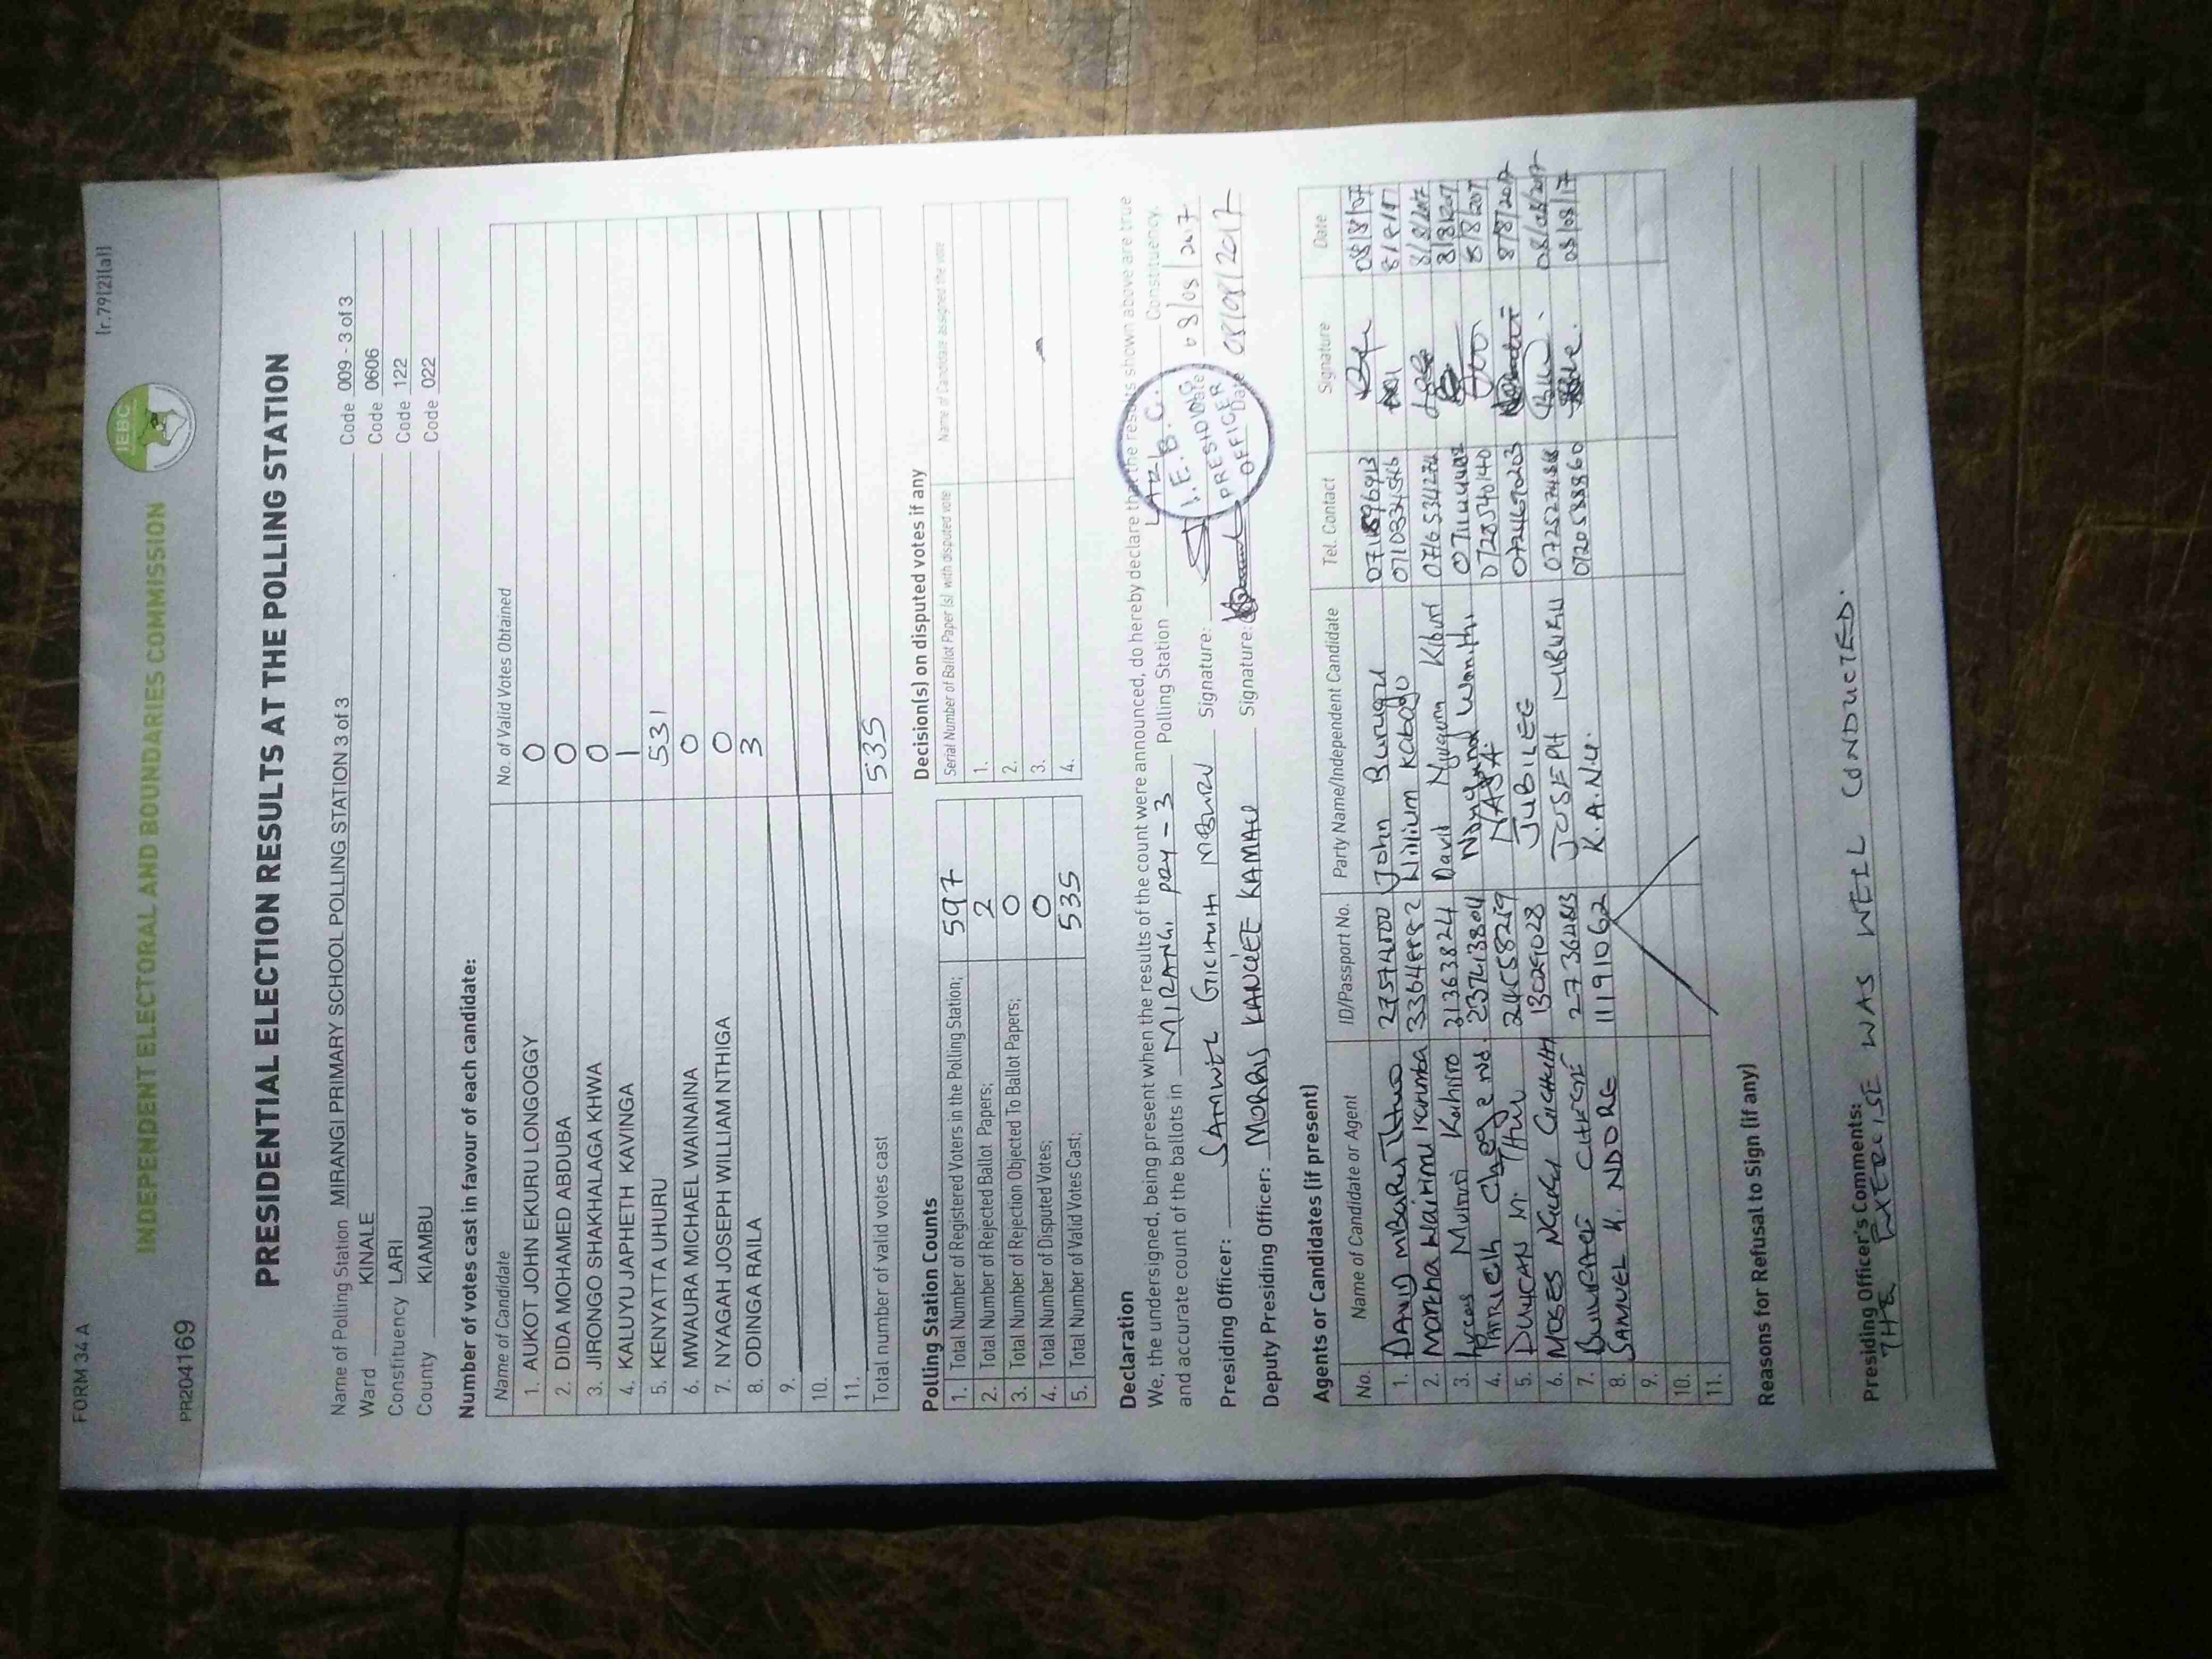 FORM 34 A
(r.79(2)(a))
IEBC
INDEPENDENT ELECTORAL AND BOUNDARIES COMMISSION
PR204169
PRESIDENTIAL ELECTION RESULTS AT THE POLLING STATION
Name of Polling Station MIRANGI PRIMARY SCHOOL POLLING STATION 3 of 3 Code 009 - 3 of 3
Ward KINALE Code 0606
Constituency LARI Code 122
County KIAMBU Code 022
Number of votes cast in favour of each candidate:
Name of Candidate No. of Valid Votes Obtained
1. AUKOT JOHN EKURU LONGOGGY 0
2. DIDA MOHAMED ABDUBA 0
3. JIRONGO SHAKHALAGA KHWA 0
4. KALUYU JAPHETH KAVINGA 1
5. KENYATTA UHURU 531
6. MWAURA MICHAEL WAINAINA 0
7. NYAGAH JOSEPH WILLIAM NTHIGA 0
8. ODINGA RAILA 3
9.
10.
11.
Total number of valid votes cast 535
Polling Station Counts
1. Total Number of Registered Voters in the Polling Station; 597
2. Total Number of Rejected Ballot Papers; 2
3. Total Number of Rejection Objected To Ballot Papers; 0
4. Total Number of Disputed Votes; 0
5. Total Number of Valid Votes Cast; 535
Decision(s) on disputed votes if any
Serial Number of Ballot Paper (s) with disputed vote Name of Candidate assigned the vote
1.
2.
3.
4.
Declaration
We, the undersigned, being present when the results of the count were announced, do hereby declare that the results shown above are true
and accurate count of the ballots in MIRANGI PRY - 3 Polling Station LARI Constituency.
Presiding Officer: SAMWEL GICHUHI MBURU Signature: Date 08/08/2017
Deputy Presiding Officer: MORRIS KANGEE KAMAU Signature: Date 08/08/2017
I.E.B.C.
PRESIDING
OFFICER
Agents or Candidates (if present)
No. Name of Candidate or Agent ID/Passport No. Party Name/Independent Candidate Tel. Contact Signature Date
1. DAVID John
2. Martha Wairimu William Kabogo
3. Lucas 21363824 David 0716534274 8/8/2017
4. 23713804 8/8/2017
5. DUNCAN M. 24558219 NASA 0728540140 8/8/2017
6. MOSES 13029028 JUBILEE 8/8/2017
7. JOSEPH 08/08/2017
8. SAMUEL K. NDORO 11191062 K.A.N.U. 0720588860 08/08/17
9.
10.
11.
Reasons for Refusal to Sign (if any)
Presiding Officer's Comments:
THE EXERCISE WAS WELL CONDUCTED.